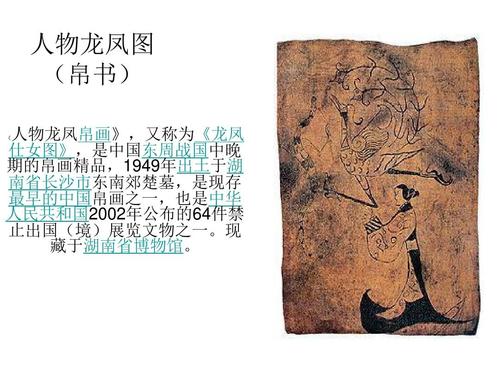 人物龙凤图
（帛书）
《人物龙凤帛画》，又称为《龙凤
仕女图》，是中国东周战国中晚
期的帛画精品，1949年出土于湖
南省长沙市东南郊楚墓，是现存
最早的中国帛画之一，也是中华
人民共和国2002年公布的64件禁
止出国（境）展览文物之一。现
藏于湖南省博物馆。